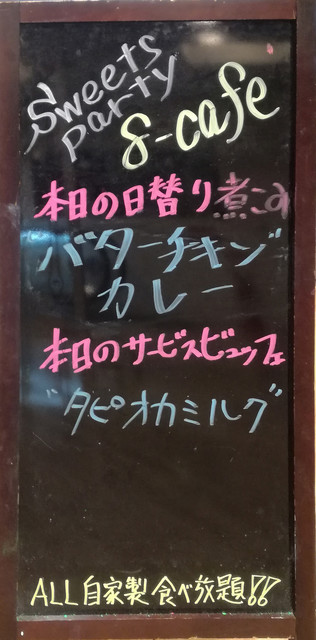 Sweets
party
8-cafe
本日の日替り煮こみ
バターチキン"
カレー
本日のサービスビュッフェ
"タピオカミルク"
ALL自家製食べ放題!!